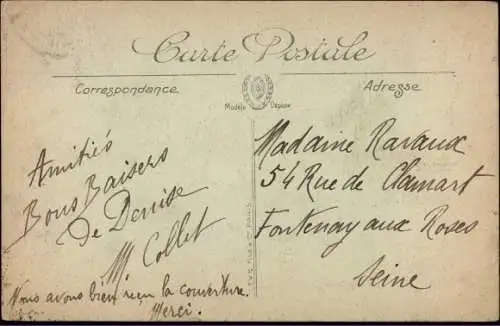 Carte Postale
Correspondance
Adresse
Modèle Déposé
Amitiés
Bons Baisers
de Denise
M Collet
Nous avons bien reçu la couverture.
Merci.
Madame Ravaux
54 Rue de Clamart
Fontenay aux Roses
Seine